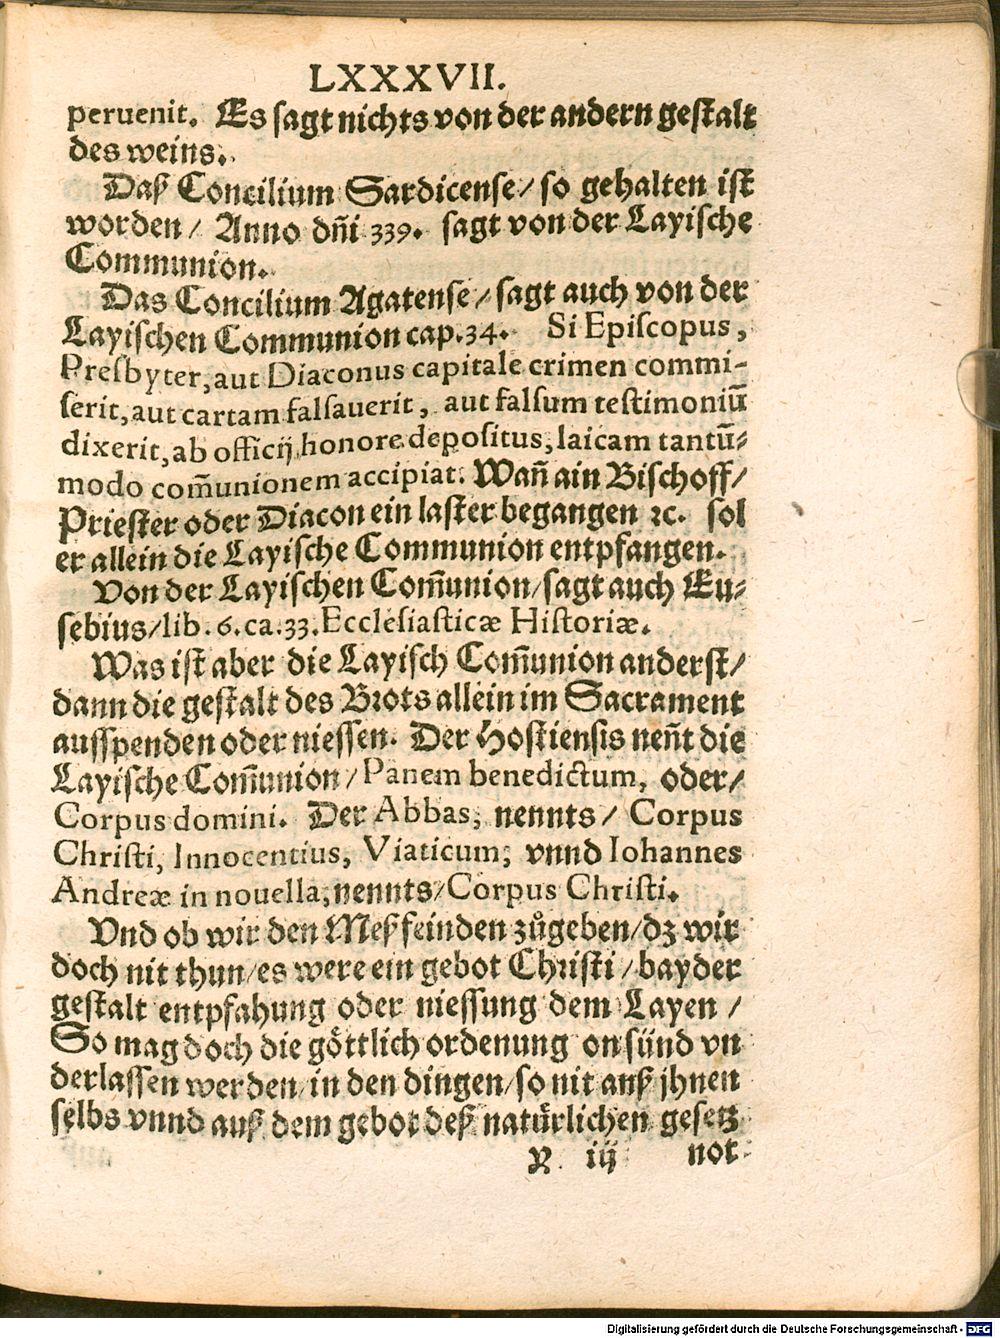 LXXXVII.
peruenit. Es sagt nichts von der andern gestalt
des weins.
Daß Concilium Sardicense/ so gehalten ist
worden/ Anno dñi 339. sagt von der Layische
Communion.
Das Concilium Agatense/ sagt auch von der
Layischen Communion cap.34. Si Episcopus,
Presbyter, aut Diaconus capitale crimen commi-
serit, aut cartam falsauerit, aut falsum testimoniū
dixerit, ab officij honore depositus, laicam tantū-
modo com̄unionem accipiat. Wan̄ ain Bischoff/
Priester oder Diacon ein laster begangen ꝛc. sol
er allein die Layische Communion entpfangen.
Von der Layischen Com̄union/ sagt auch Eu-
sebius/ lib. 6. ca. 33. Ecclesiasticæ Historiæ.
Was ist aber die Layisch Com̄union anderst/
dann die gestalt des Brots allein im Sacrament
ausspenden oder niessen. Der Hostiensis nen̄t die
Layische Com̄union/ Panem benedictum, oder/
Corpus domini. Der Abbas, nennts/ Corpus
Christi, Innocentius, Viaticum; vnnd Iohannes
Andreæ in nouella, nennts/ Corpus Christi.
Vnd ob wir den Meßfeinden zůgeben/ dz wir
doch nit thun/ es were ein gebot Christi/ bayder
gestalt entpfahung oder niessung dem Layen/
So mag doch die göttlich ordenung on sünd vn
derlassen werden/ in den dingen/ so nit auß jhnen
selbs vnnd auß dem gebot deß natürlichen gesetz
X iij not-
Digitalisierung gefördert durch die Deutsche Forschungsgemeinschaft - DFG